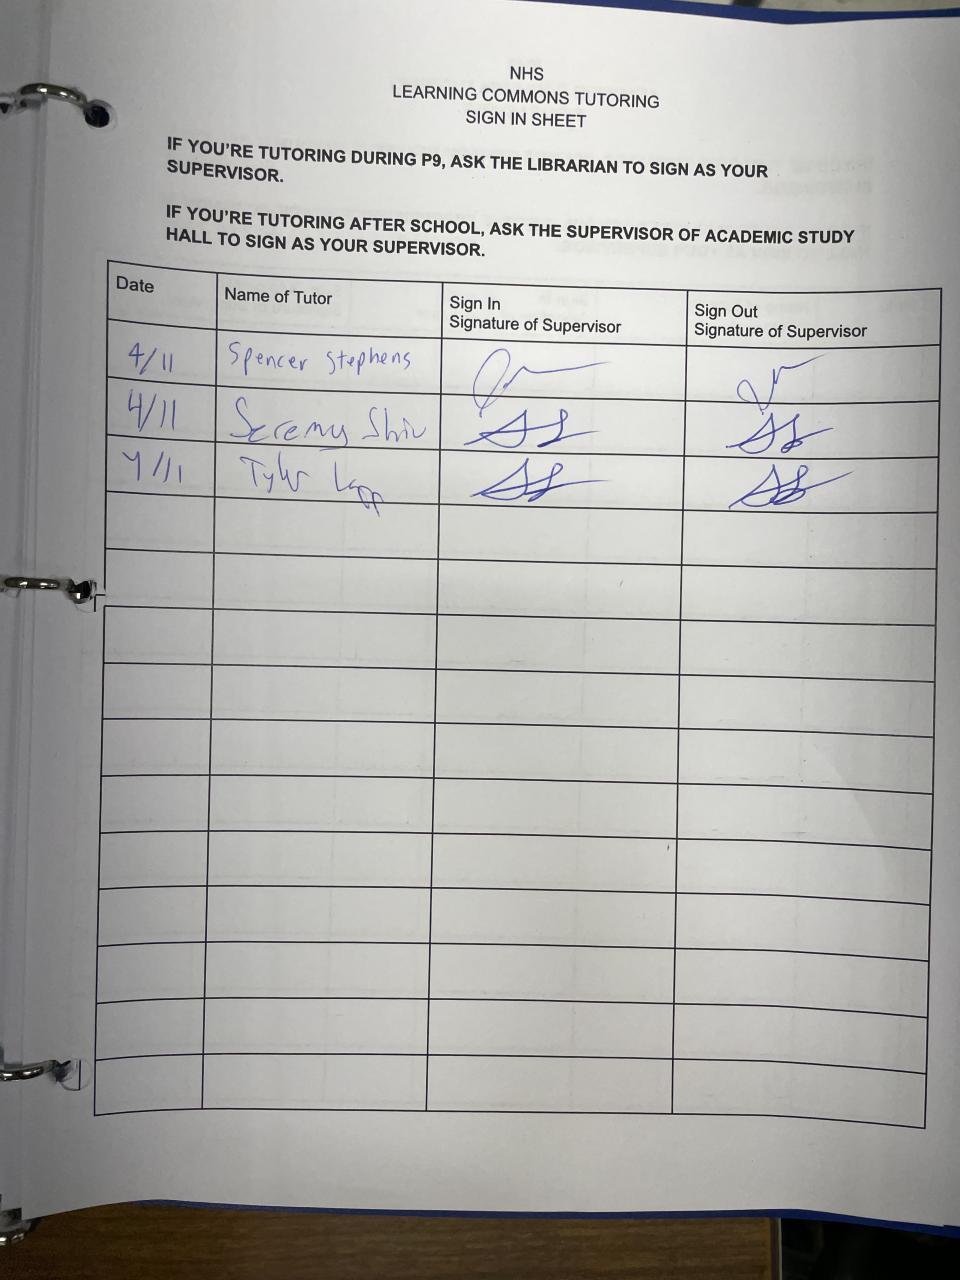 NHS
LEARNING COMMONS TUTORING
SIGN IN SHEET
IF YOU'RE TUTORING DURING P9, ASK THE LIBRARIAN TO SIGN AS YOUR
SUPERVISOR.
IF YOU'RE TUTORING AFTER SCHOOL, ASK THE SUPERVISOR OF ACADEMIC STUDY
HALL TO SIGN AS YOUR SUPERVISOR.
Date Name of Tutor Sign In Sign Out
Signature of Supervisor Signature of Supervisor
4/11 Spencer Stephens
4/11 Jeremy Shiu
4/11 Tyler Lapp